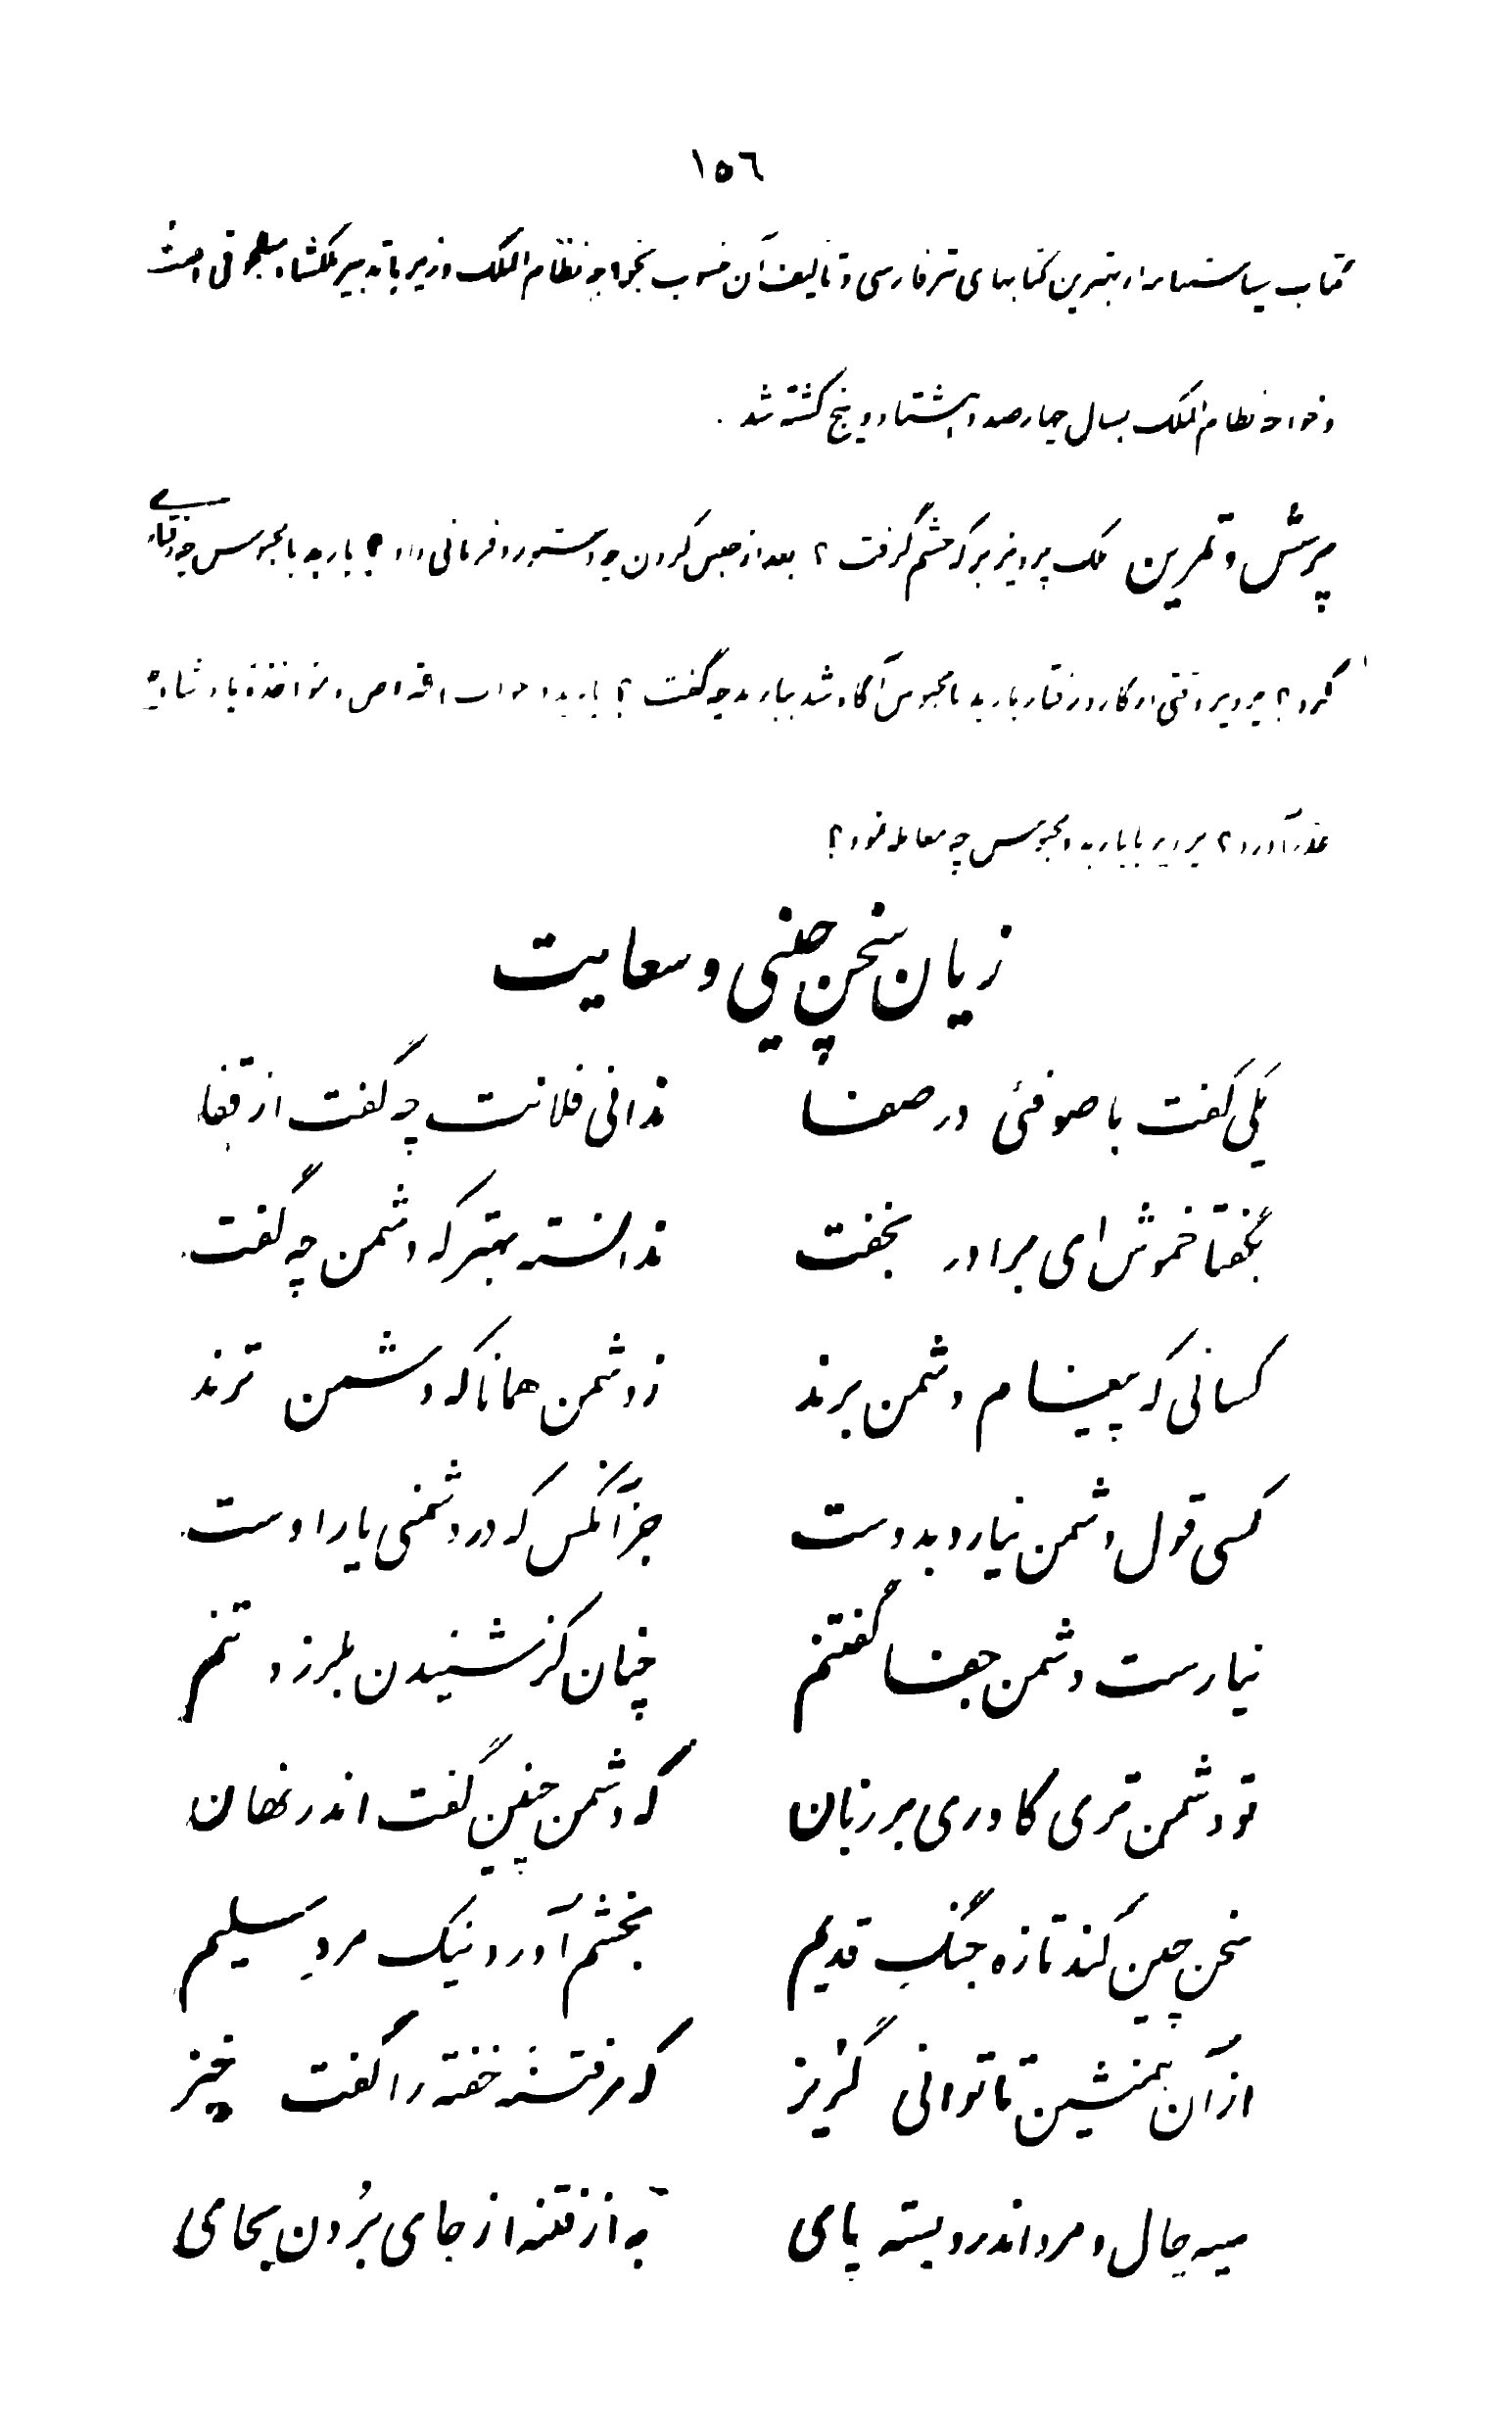 ١٥٦
کتاب سیاستنامه از بهترین کتابهای نثر فارسی و تألیف آن منسوب بخواجه نظام الملک وزیر با تدبیر ملکشاه سلجوقی است
و خواجه نظام الملک بسال چهارصد و هشتاد و پنج کشته شد .
پرسش و تمرین ملک پرویز بر که خشم گرفت ؟ بعد از حبس کردن چه دستور و فرمانی داد ؟ باربد با محبوس چه رفتاری
کرد ؟ پرویز وقتی از کار و رفتار باربد با محبوس آگاه شد بباربد چه گفت ؟ باربد در جواب اعتراض و مؤاخذه پادشاه چه
عذر آورد ؟ پرویز با باربد و محبوس چه معامله نمود ؟
زیان سخن چینی و سعایت
یکی گفت با صوفئی در صفا ندانی فلانت چه گفت از قفا
بگفتا خموش ای برادر بخفت ندانسته بهتر که دشمن چه گفت
کسانی که پیغام دشمن برند ز دشمن همانا که دشمن ترند
کسی قول دشمن نیارد بدوست جز آنکس که در دشمنی یار اوست
نیارست دشمن جفا گفتنم چنان کز شنیدن بلرزد تنم
تو دشمن تری کاوری بر زبان که دشمن چنین گفت اندر نهان
سخن چین کند تازه جنگِ قدیم بخشم آورد نیک مردِ سلیم
از آن همنشین تا توانی گریز که مر فتنهٔ خفته را گفت خیز
سیه چال و مرد اندرو بسته پای به از فتنه از جای بُردن بجای